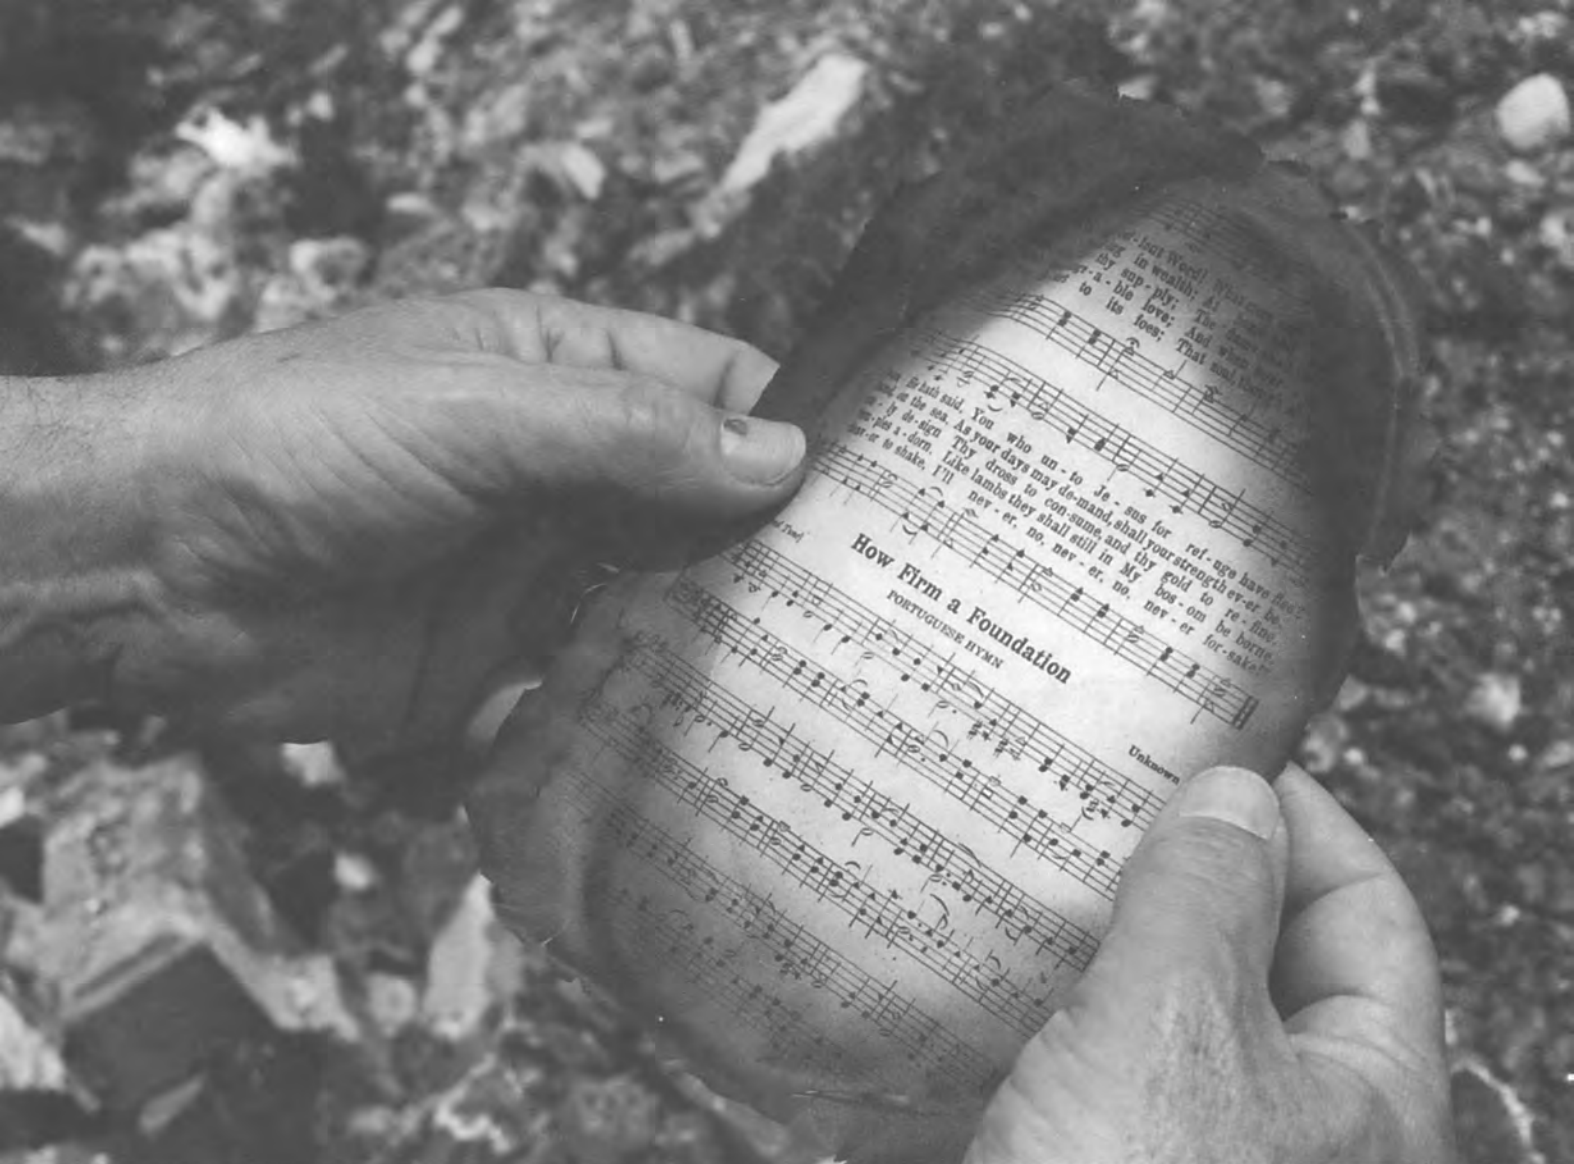 Word! What
in wealth; 
thy sup - ply; The flame
ble love; And when
to its foes; That soul
He hath said, You who un - to Je - sus for ref - uge have fled?
the sea, As your days may de-mand, shall your strength ev-er be.
ly de-sign Thy dross to con-sume, and thy gold to re - fine.
ples a - dorn, Like lambs they shall still in My bos - om be borne.
to shake, I'll nev - er, no, nev - er, no, nev - er for-sake!
How Firm a Foundation
PORTUGUESE HYMN
Unknown